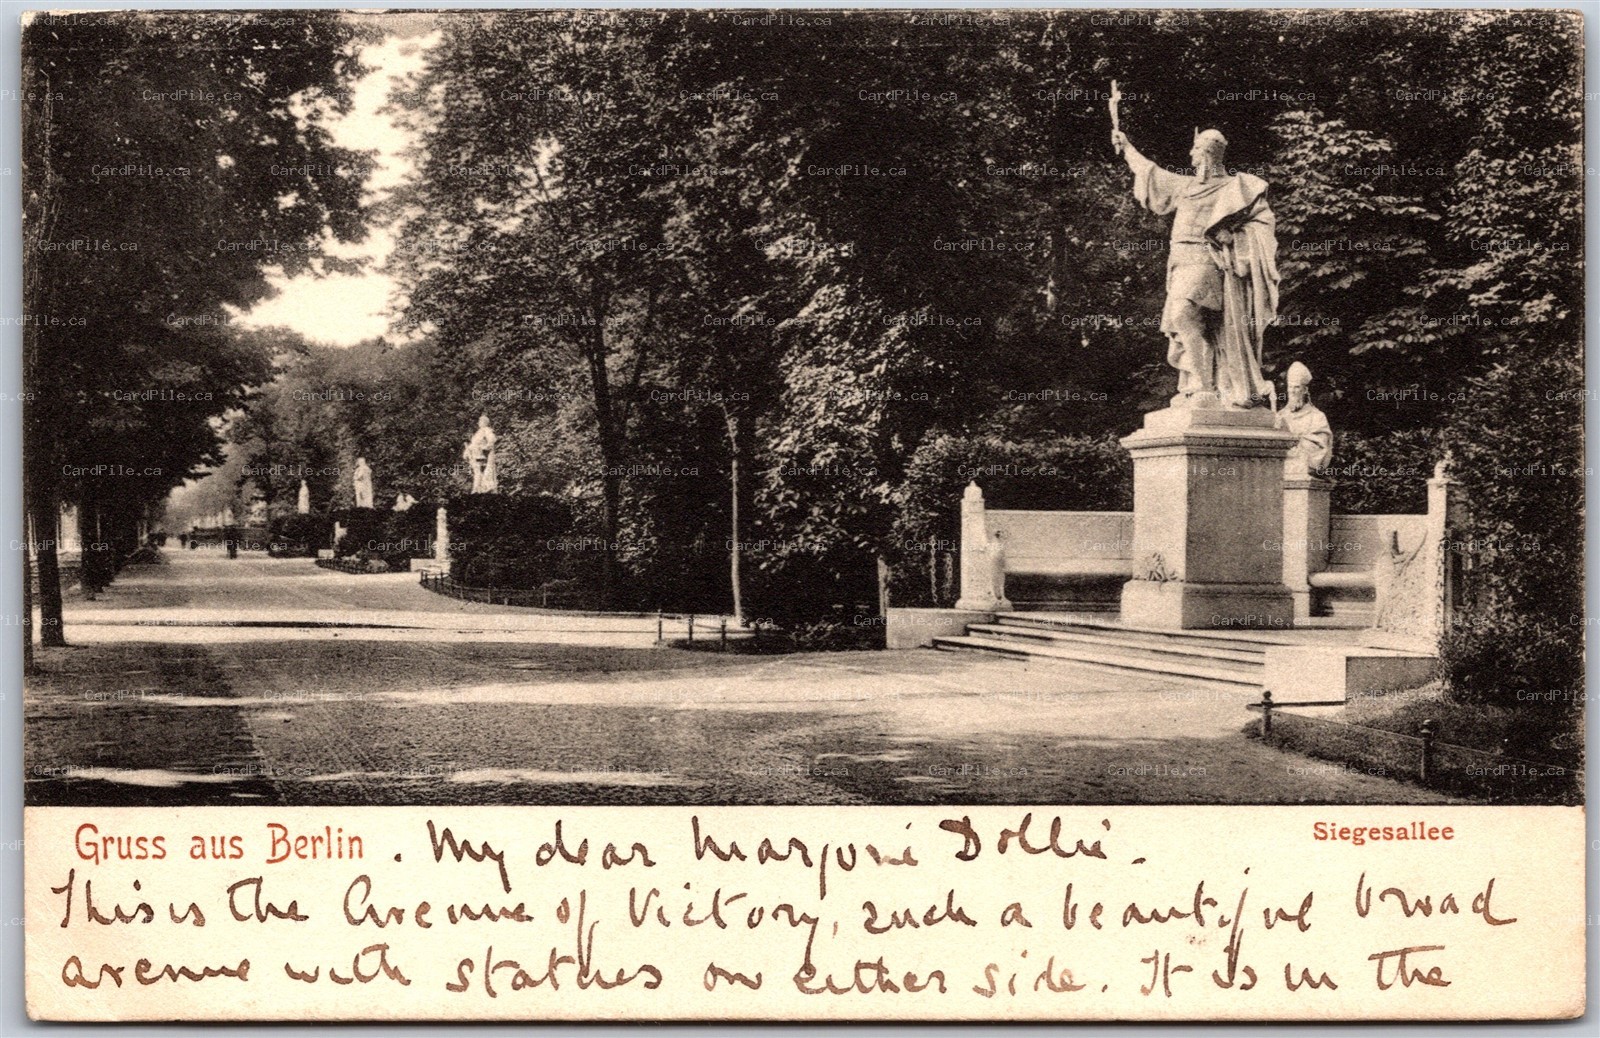 Gruss aus Berlin . My dear Marjorie Dollie. Siegesallee
This is the Avenue of Victory, such a beautiful broad
avenue with statues on either side. It is in the
CardPile.ca